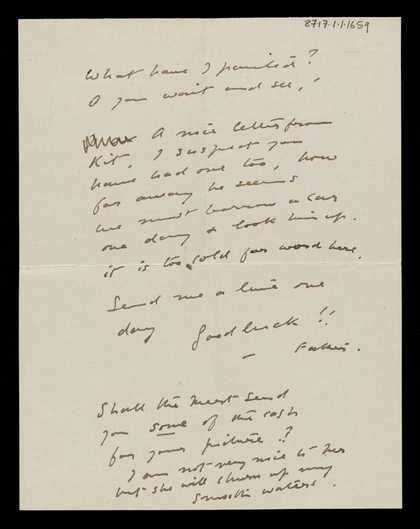 8717.1.1.1659
What have I painted?
O you wait and see, !
A nice letter from
Kit, I suspect you
have had one too, how
far away he seems
we must borrow a car
one day & look him up.
it is too cold for word here.
Send me a line one
day Good luck !!
– Father.
Shall the send
you some of the cash
for your picture ??
I am not very nice to her
but she will churn up my
smooth waters.